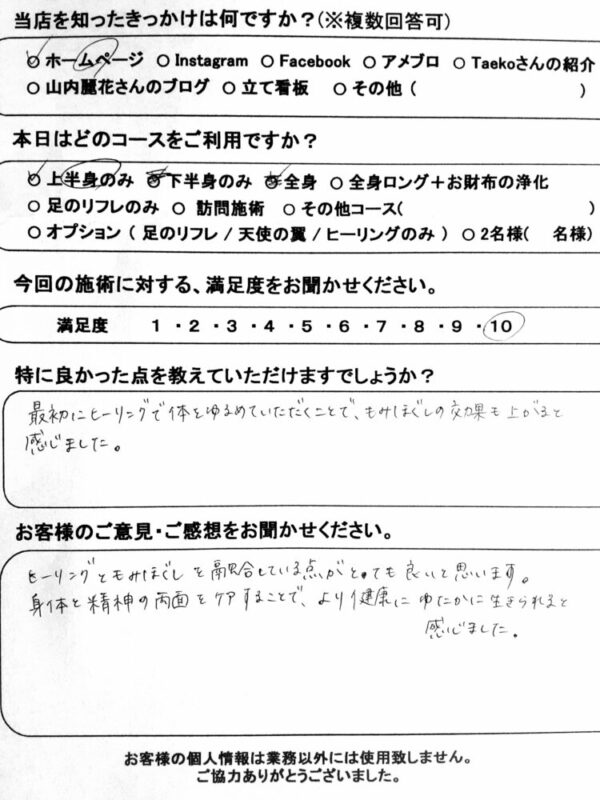 当店を知ったきっかけは何ですか？(※複数回答可)
○ ホームページ ○ Instagram ○ Facebook ○ アメブロ ○ Taekoさんの紹介
○ 山内麗花さんのブログ ○ 立て看板 ○ その他 ( )
本日はどのコースをご利用ですか？
○ 上半身のみ ○ 下半身のみ ○ 全身 ○ 全身ロング＋お財布の浄化
○ 足のリフレのみ ○ 訪問施術 ○ その他コース( )
○ オプション ( 足のリフレ / 天使の翼 / ヒーリングのみ ) ○ 2名様( 名様)
今回の施術に対する、満足度をお聞かせください。
満足度 1 ・ 2 ・ 3 ・ 4 ・ 5 ・ 6 ・ 7 ・ 8 ・ 9 ・ 10
特に良かった点を教えていただけますでしょうか？
最初にヒーリングで体をゆるめていただくことで、もみほぐしの効果も上がると
感じました。
お客様のご意見・ご感想をお聞かせください。
ヒーリングともみほぐしを融合している点がとても良いと思います。
身体と精神の両面をケアすることで、より健康にゆたかに生きられると
感じました。
お客様の個人情報は業務以外には使用致しません。
ご協力ありがとうございました。